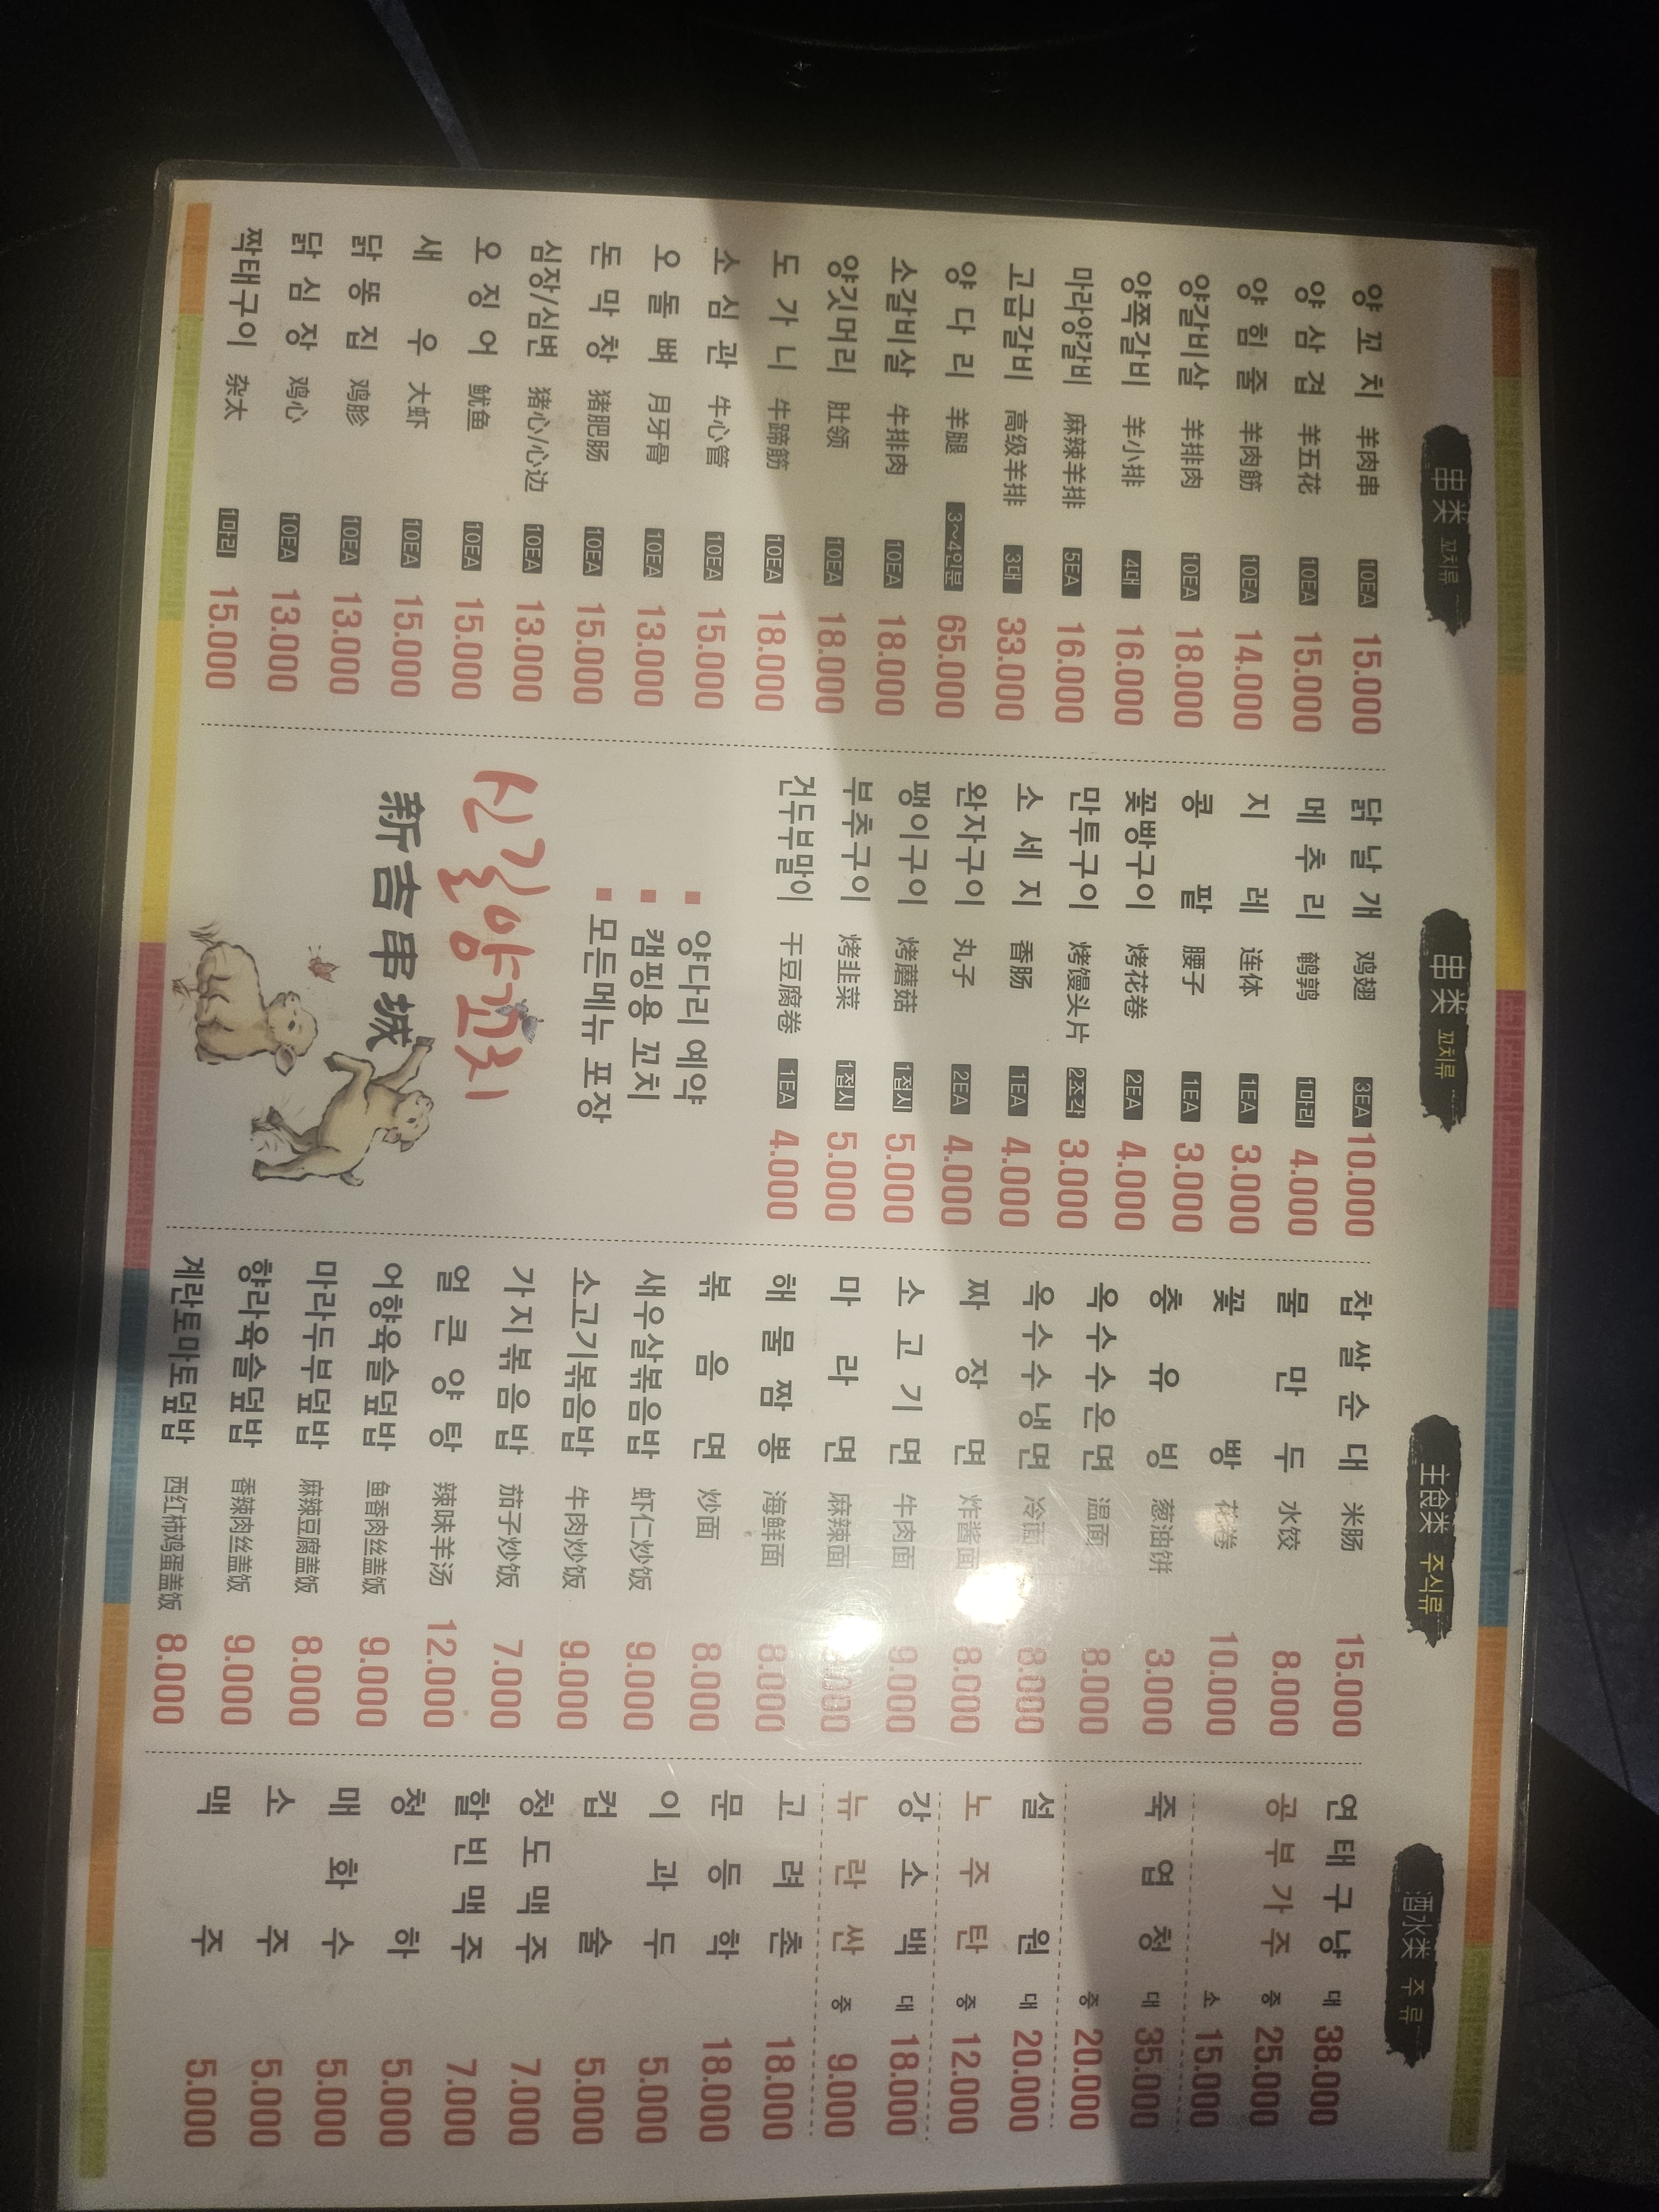 串类 꼬치류
양꼬치 羊肉串 10EA 15.000
양삼겹 羊五花 10EA 15.000
양힘줄 羊肉筋 10EA 14.000
양갈비살 羊排肉 10EA 18.000
양쪽갈비 羊小排 4대 16.000
마라양갈비 麻辣羊排 5EA 16.000
고급갈비 高级羊排 3대 33.000
양다리 羊腿 3~4인분 65.000
소갈비살 牛排肉 10EA 18.000
양깃머리 肚领 10EA 18.000
도가니 牛蹄筋 10EA 18.000
소심관 牛心管 10EA 15.000
오돌뼈 月牙骨 10EA 13.000
돈막창 猪肥肠 10EA 15.000
심장/심변 猪心/心边 10EA 13.000
오징어 鱿鱼 10EA 15.000
새우 大虾 10EA 15.000
닭똥집 鸡胗 10EA 13.000
닭심장 鸡心 10EA 13.000
짝태구이 杂太 1마리 15.000
串类 꼬치류
닭날개 鸡翅 3EA 10.000
메추리 鹌鹑 1마리 4.000
지레 连体 1EA 3.000
콩팥 腰子 1EA 3.000
꽃빵구이 烤花卷 2EA 4.000
만투구이 烤馒头片 2조각 3.000
소세지 香肠 1EA 4.000
완자구이 丸子 2EA 4.000
팽이구이 烤蘑菇 1접시 5.000
부추구이 烤韭菜 1접시 5.000
건두부말이 干豆腐卷 1EA 4.000
■ 양다리 예약
■ 캠핑용 꼬치
■ 모든메뉴 포장
신길양꼬치
新吉串城
主食类 주식류
찹쌀순대 米肠 15.000
물만두 水饺 8.000
꽃빵 花卷 10.000
총유빙 葱油饼 3.000
옥수수온면 温面 8.000
옥수수냉면 冷面 8.000
짜장면 炸酱面 8.000
소고기면 牛肉面 9.000
마라면 麻辣面
해물짬뽕 海鲜面 8.000
볶음면 炒面 8.000
새우살볶음밥 虾仁炒饭 9.000
소고기볶음밥 牛肉炒饭 9.000
가지볶음밥 茄子炒饭 7.000
얼큰양탕 辣味羊汤 12.000
어향육슬덮밥 鱼香肉丝盖饭 9.000
마라두부덮밥 麻辣豆腐盖饭 8.000
향라육슬덮밥 香辣肉丝盖饭 9.000
계란토마토덮밥 西红柿鸡蛋盖饭 8.000
酒水类 주류
연태구냥 대 38.000
공부가주 중 25.000
소 15.000
죽엽청 대 35.000
중 20.000
설원 대 20.000
노주탄 중 12.000
강소백 대 18.000
뉴란싼 중 9.000
고려촌 18.000
문등학 18.000
이과두 5.000
컵술 5.000
청도맥주 7.000
할빈맥주 7.000
청하 5.000
매화수 5.000
소주 5.000
맥주 5.000